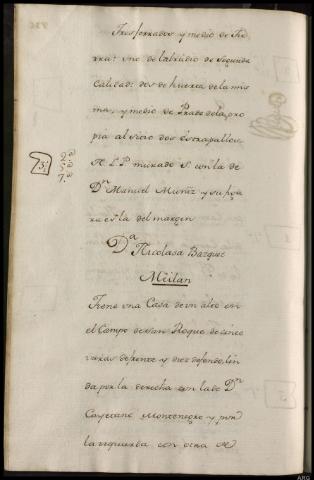 Tres ferrados y medio de Tie
rra: uno de labradio de segunda
calidad: dos de huerta de la mis
ma, y medio de Prado de la pro
pia al sitio dos
N. L. P. murado S. con la de
Dn Manuel Muñiz y su figu
ra es la del margen
2.a
3.a
7.a
Da Nicolasa Bazquez
Meilan
Tiene una Casa de un alto en
el Campo de San Roque de cinco
varas de frente y diez de fondo, lin
da por la derecha con la de Dn
Cayetano Montenegro y por
la izquierda con otra de